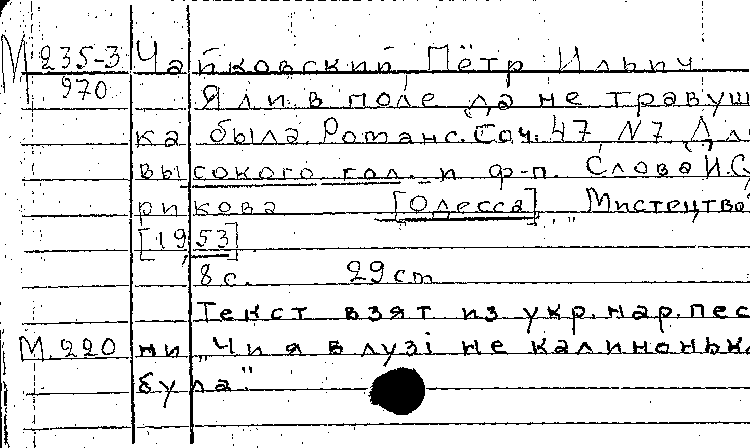 М 235-3 Чайковский Пётр Ильич
970 Я ли в поле да не травуш
ка была. Романс. Соч. 47, N7. Для
высокого гол. и ф-п. Слова И. Су
рикова [Одесса], "Мистецтво"
[1953]
8 с. 29 cm
Текст взят из укр. нар. пес
М. 220 ни „Чи я в лузі не калинонька
була"